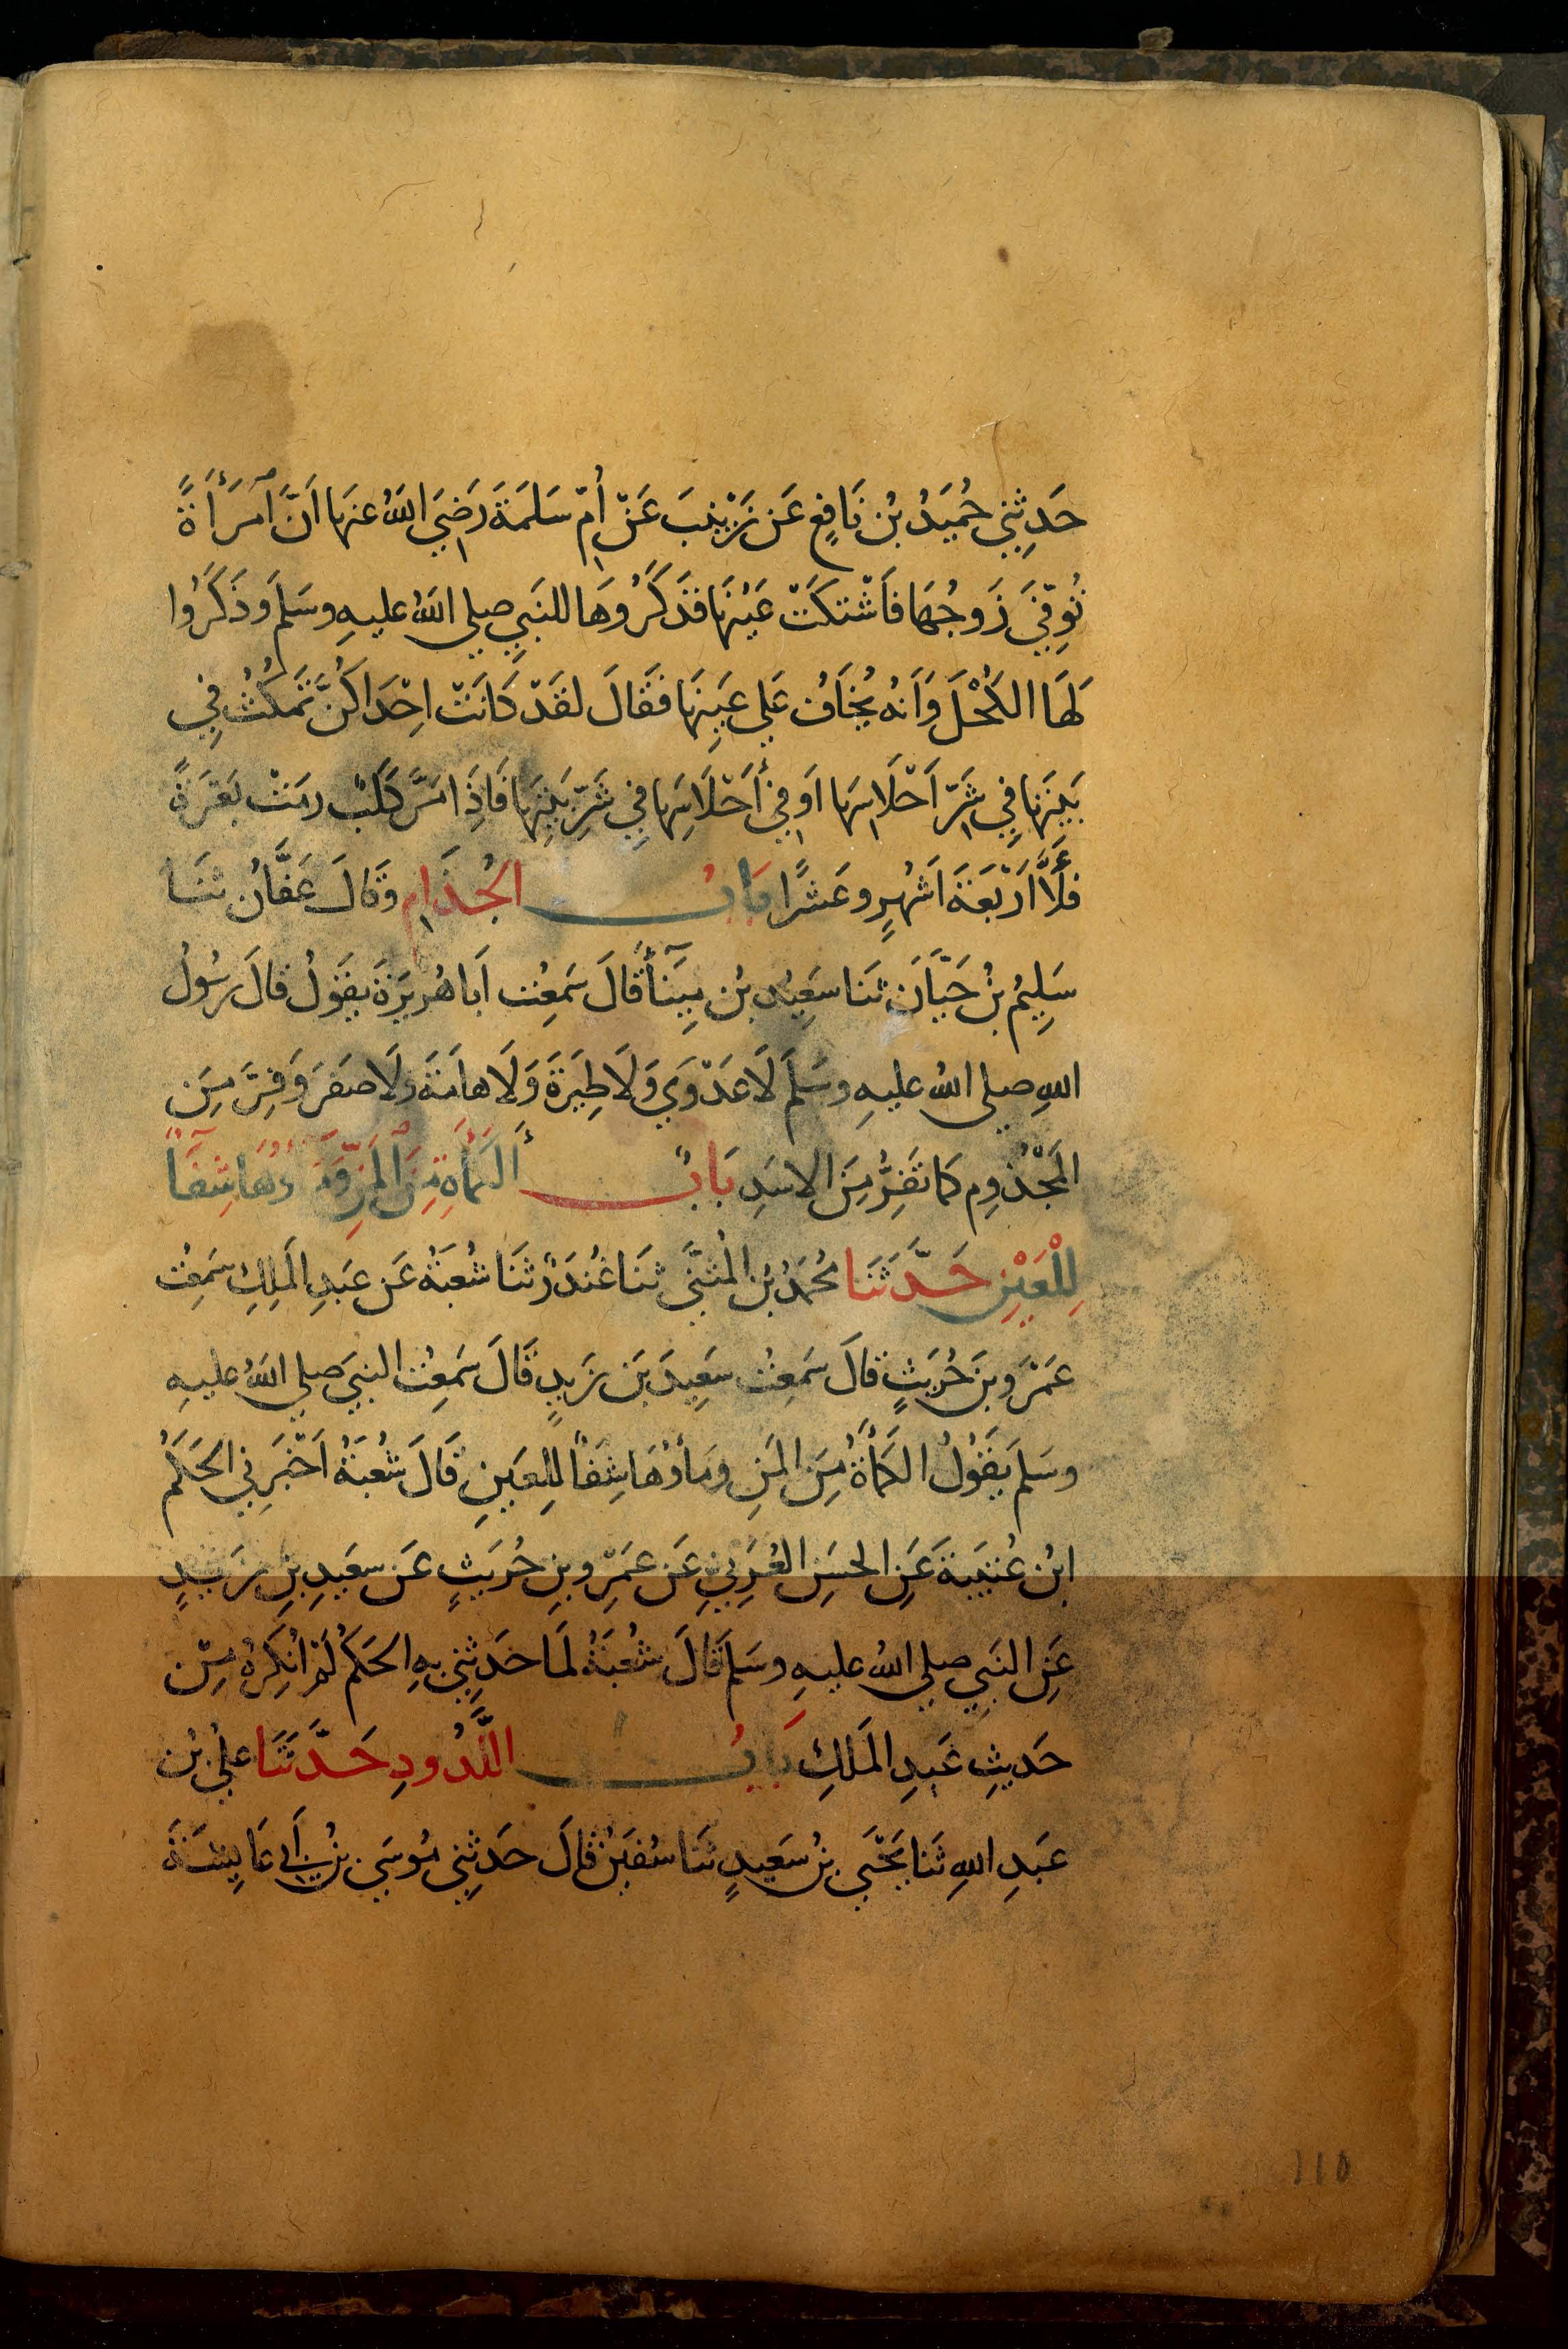 حَدثِني حُمَيدُ بْن نَافِعٍ عَن زَيْنبَ عَنْ اُمّ سَلمَةَ رَضِيَ اللهُ عنهَا اَنَّ ٱمرَأَةً
تُوِفّيَ زَوجُهَا فَاشْتكَتْ عَينهَا فذَكَرُوهَا للنَبِي صلي اللهُ عليهِ وسَلمَ وَذكَرُوا
لهَا الكُحْلَ وَاَنهُ يُخَافُ عَلي عَينِهَا فَقَالَ لقَدْ كَانَتْ اِحْدَاكُنَّ تَمكُثُ فِي
بَيتِهَا فِي شَرّ اَحْلَاسِهَا اَو فِي أَحْلَاسِهَا فِي شَرِّ بَيتِهَا فَاِذَا مَرَّ كَلبٌ رمَتْ بَعْرَةً
فلَاَّ اَرْبَعَةَ اَشهُرٍ وعَشرًا بَابُ الجُذَامِ وَقَالَ عَفَّانُ ثنَا
سَلِيمُ بْنُ حَيَّانَ ثنَا سَعِيدُ بْن مِينَأً قَالَ سَمعِت اَبا هُريرَةَ يقوُلُ قالَ رسُولُ
اللهِ صلي اللهُ عليهِ وسَلمَ لَا عَدْوَي وَلَا طِيَرَةَ وَلَا هامَةَ وَلَا صفَرَ وَفِرَّ مِنَ
المَجْذُومِ كمَا تَفِرُّ مِنَ الاسَدِ بَابٌ أَلكَمْأَةِ مِنَ ٱلمَنِّ وَمَاؤُهَا شِفَآً
لِلْعَيْنِ حَدَّثَنَا مُحمَدُ بْن المُثنَّي ثنَا غُندَرٌ ثنَا شُعبَةُ عَن عَبدِ المَلِكِ سَمِعتُ
عَمْرَو بنَ حُرَيثٍ قالَ سَمعِتُ سَعِيدَ بَن زَيدٍ قَالَ سَمعِتُ النبيَ صلي اللهُ عليهِ
وسَلمَ يقَوُلُ الكَمأَةُ مِنَ المَنِ ومَاؤُهَا شِفَاً لِلعَينِ قَالَ شُعبَةُ اَخْبَرنِي الحَكَمُ
ابْن عُتَيبَةَ عَنِ الحسَنِ العُرَنِيِّ عَن عَمْرِو بنِ حُرَيثٍ عَن سعَيدِ بنِ زَيدٍ
عَنِ النبَيِ صلي اللهُ عليهِ وسَلمَ قَالَ شعُبَةُ لمَا حَدثِني بِهِ الحَكَمُ لَمْ انُكِرهُ مِنْ
حَديثِ عَبدِ المَلكِ بَابُ اللَّدُودِ حَدَّثَنَا عَليُ بُن
عَبدِ اللهِ ثنَا يَحْيَي بْن سَعَيدٍ ثنَا سُفيَنُ قَالَ حَدثِني مُوسَي بْن اَبي عَايِشَةَ
110